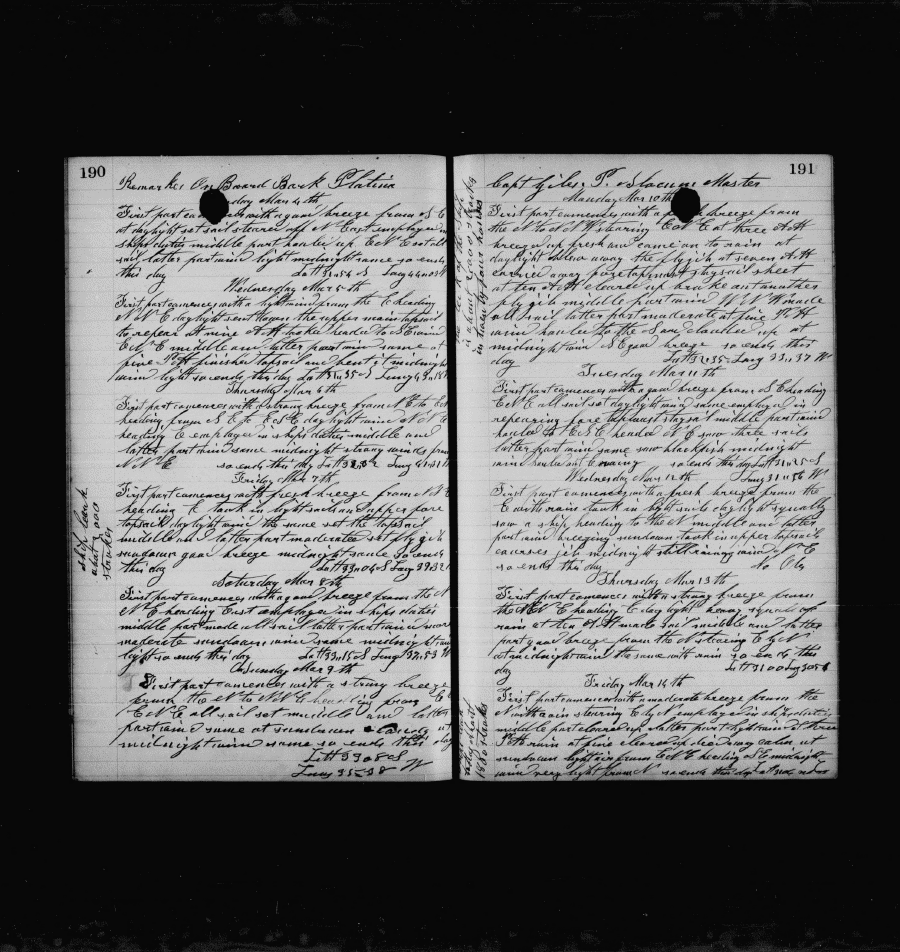 190
Remarks On Board Bark Platina
day Mar 4th
First part with a good breeze from S E
at daylight set sail steared off N East employed in
ships duties middle part hauled up E N E set all
sail latter part wind light midnight same so ends
this day Latt 31"54 S Long 44"03 W
Wednesday Mar 5th
First part comences with a light wind from the E heading
N N E daylight sent down the upper main topsail
to repair at nine A M tacked headed to S E wind
E N E middle and latter part wind same at
five P M finished topsail and bent it midnight
wind light so ends this day Latt 31"35 S Long 43"18 W
Thursday Mar 6th
First part comences with a strong breeze from N E to E
heading from S E to E S E daylight wind N N E
heading E employed in ships duties middle and
latter part wind same midnight strong winds from
N N E so ends this day Latt 32"52 Long 41"31 W
Friday Mar 7th
First part comences with fresh breeze from N N E
heading E took in light sails and upper fore
topsail daylight wind the same set the topsail
middle and latter part moderate set fly gib
sundown good breeze midnight same so ends
this day Latt 33"04 S Long 39"32
ship leank
what 9,000
strokes
Saturday Mar 8th
First part comences with a good breeze from the N
N E heading East employed in ships duties
middle part made all sail latter part wind more
moderate sundown wind same midnight wind
light so ends this day Latt 33"15 S Long 37"53 W
Sunday Mar 9th
First part comences with a strong breeze
from the N to N N E heading from E to
E N E all sail set middle and latter
part wind same at sundown cloudy at
midnight wind same so ends this day
Latt 33 05 S
Long 35"38 W
191
Capt Giles P. Slocum Master
Monday Mar 10th
First part comences with a fresh breeze from
the N to N N W stearing E N E at three A M
breezed up fresh and came on to rain at
daylight blew away the fly gib at seven A M
carried away foretopmast staysail sheet
at ten A M cleared up broke out another
fly gib middle part wind W N W made
all sail latter part moderate at five P M
wind hauled to the S and clouded up at
midnight wind S E good breeze so ends this
day Latt 32"35 Long 33"37 W
Tuesday Mar 11th
First part comences with a good breeze from S E heading
E N E all sail set daylight wind same employed in
repearing fore topmast staysail middle part wind
hauled to E S E headed N E saw three sails
latter part wind same saw blackfish midnight
wind hauled out E so ends this day Latt 31"25 S
Wednesday Mar 12th Long 31"56 W
First part comences with a fresh breeze from the
E with rain took in light sails daylight squally
saw a ship heading to the N middle and latter
part wind breezing sundown took in upper topsails
courses jib midnight still raining wind N E
so ends this day No Obs
Thursday Mar 13th
First part comences with a strong breeze from
the N E heading E daylight heavy squalls of
rain at ten A M made sail middle and latter
part good breeze from the N stearing E by N
at midnight wind the same with rain so ends this
day Latt 31 00 Long 30 51
Friday Mar 14th
First part comences with a moderate breeze from the
N with rain stearing E by N employed in ships duties
middle part cleared up latter part light wind at three
P M rain at five cleared up dead away calm at
sundown light air from E N E heading S E midnight
wind very light from N so ends this day Latt
1880 strokes